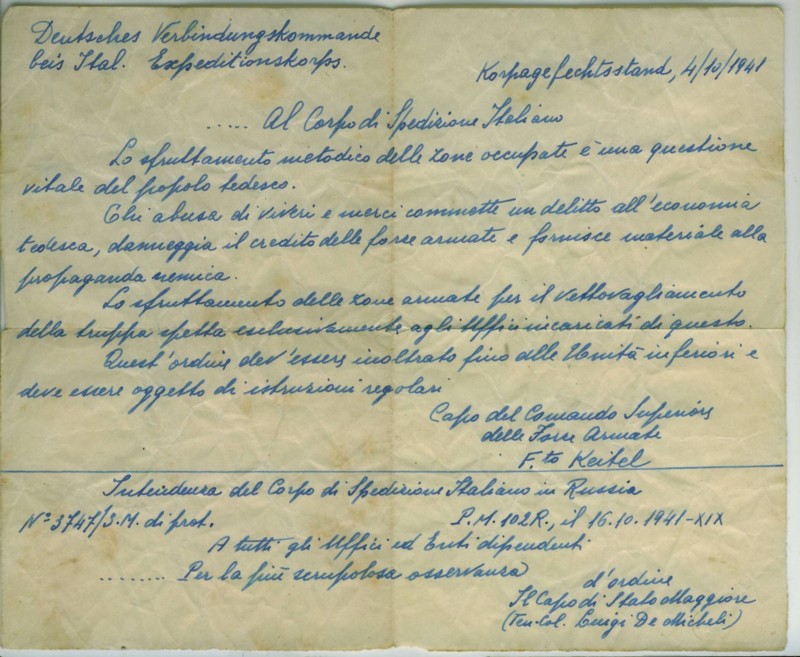 Deutsches Verbindungskommande
beis Ital. Expeditionskorps.
Korpsgefechtsstand, 4/10/1941
..... Al Corpo di Spedizione Italiano
Lo sfruttamento metodico delle zone occupate è una questione
vitale del popolo tedesco.
Chi abusa di viveri e merci commette un delitto all'economia
tedesca, danneggia il credito delle forse armate e fornisce materiale alla
propaganda nemica.
Lo sfruttamento delle zone armate per il vettovagliamento
della truppa spetta esclusivamente agli Uffici incaricati di questo.
Quest'ordine dev'essere inoltrato fino alle Unità inferiori e
deve essere oggetto di istruzioni regolari
Capo del Comando Superiore
delle Forse Armate
F.to Keitel
Intendenza del Corpo di Spedizione Italiano in Russia
N° 3747/S.M. di prot.
P.M. 102R., il 16.10.1941-XIX
A tutti gli Uffici ed Enti dipendenti
........ Per la più scrupolosa osservanza
d'ordine
Il Capo di Stato Maggiore
(Ten-Col. Luigi De Micheli)